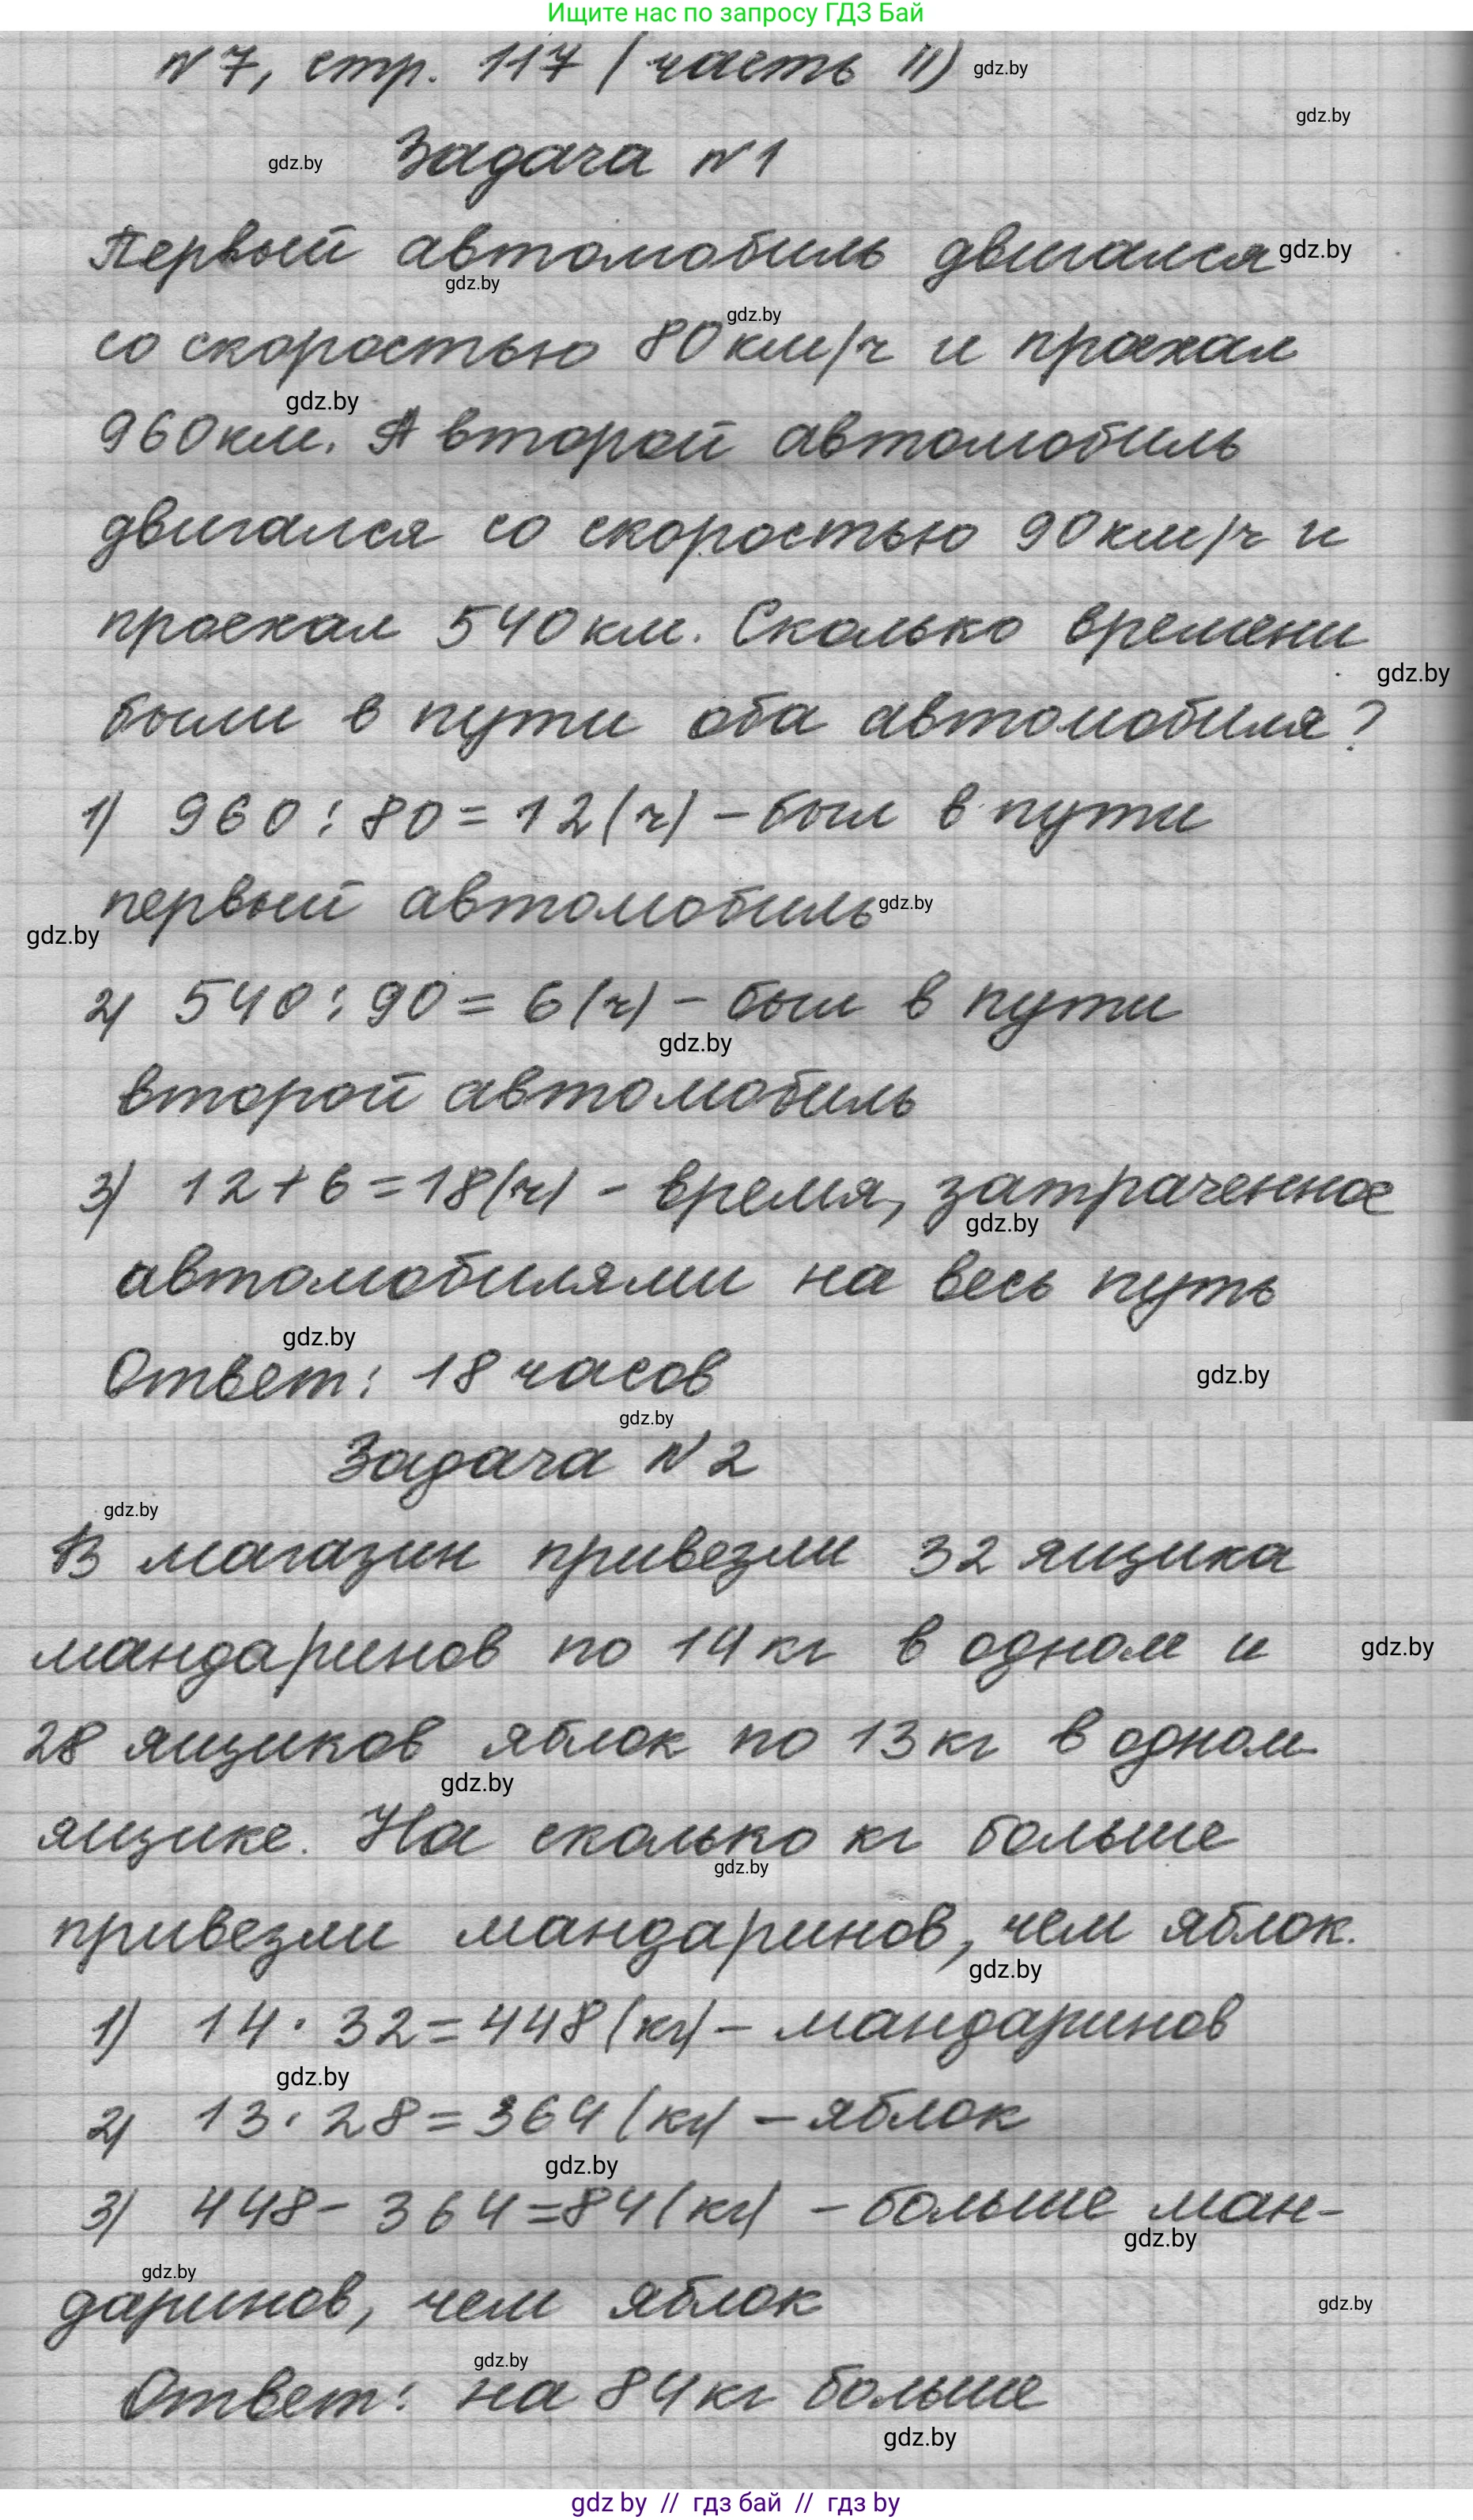 Ищите нас по запросу ГДЗ Бай
№7, стр. 117 (часть II) gdz.by
gdz.by
gdz.by Задача №1
Первый автомобиль двигался gdz.by
gdz.by
со скоростью 80 км/ч и проехал
gdz.by
gdz.by
960 км. А второй автомобиль
двигался со скоростью 90 км/ч и
проехал 540 км. Сколько времени
gdz.by
были в пути оба автомобиля?
1) 960 : 80 = 12 (ч) – был в пути
первый автомобиль gdz.by
gdz.by
2) 540 : 90 = 6 (ч) – был в пути
gdz.by
второй автомобиль
3) 12 + 6 = 18 (ч) – время, затраченное
gdz.by
автомобилями на весь путь
gdz.by
Ответ: 18 часов gdz.by
gdz.by
Задача №2
gdz.by
В магазин привезли 32 ящика
мандаринов по 14 кг в одном и gdz.by
28 ящиков яблок по 13 кг в одном
gdz.by
ящике. На сколько кг больше
gdz.by
привезли мандаринов, чем яблок.
gdz.by
1) 14 · 32 = 448 (кг) – мандаринов
gdz.by
2) 13 · 28 = 364 (кг) – яблок
gdz.by
3) 448 – 364 = 84 (кг) – больше ман-
gdz.by
gdz.by
даринов, чем яблок gdz.by
gdz.by
Ответ: на 84 кг больше
gdz.by
gdz by // гдз бай // гдз by